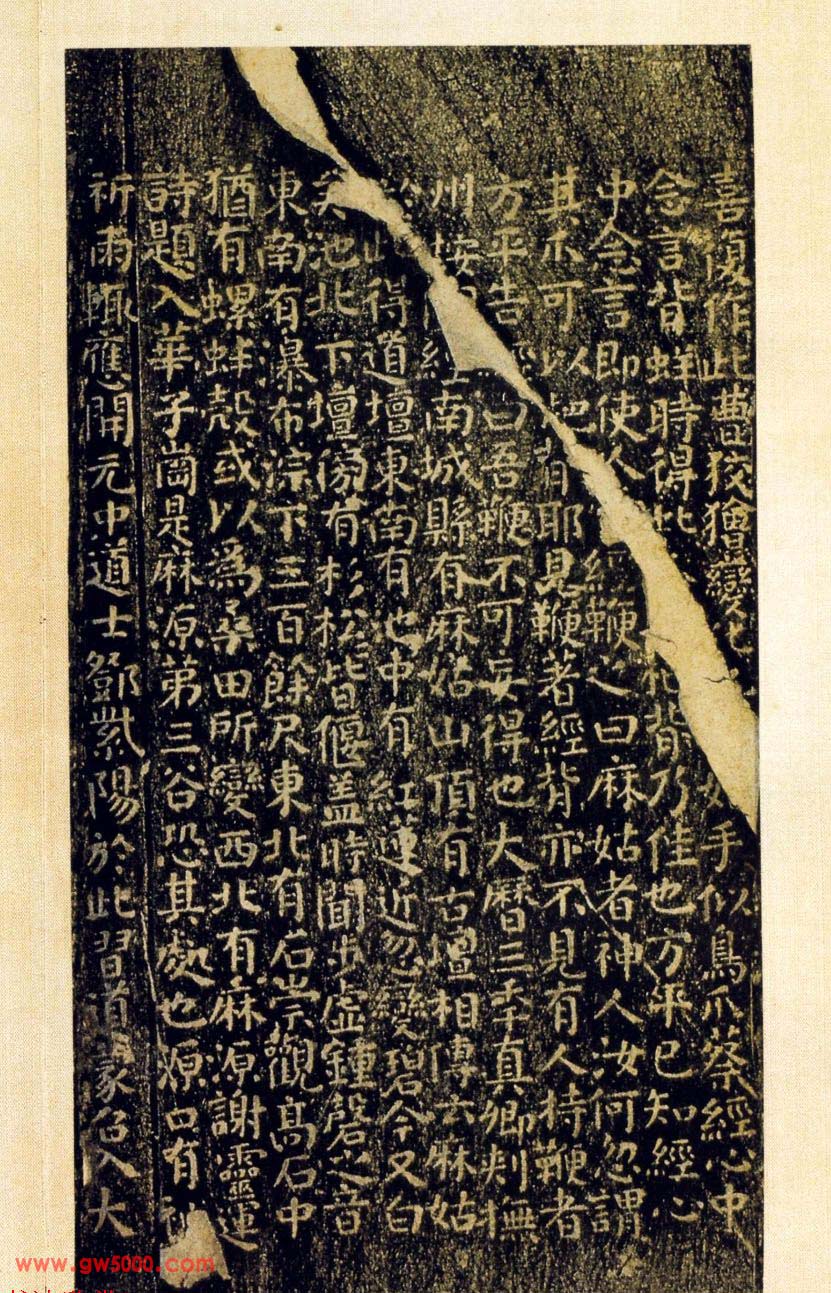 喜復作此曹狡獪變化 手似鳥爪蔡經心中
念言背蛘時得此 背乃佳也方平已知經心
中念言即使人 經鞭之曰麻姑者神人汝何忽謂
其爪可以 背耶見鞭著經背亦不見有人持鞭者
方平告經曰吾鞭不可妄得也大曆三年真卿刺撫
州按 經南城縣有麻姑山頂有古壇相傳云麻姑
於此得道壇東南有池中有紅蓮近忽變碧今又白
矣池北下壇傍有杉松皆偃盖時聞步虛鍾磬之音
東南有瀑布淙下三百餘尺東北有石崇觀高石中
猶有螺蚌殻或以為桑田所變西北有麻源謝靈運
詩題入華子崗是麻源第三谷恐其處也源口有神
祈雨輒應開元中道士鄧紫陽於此習道蒙召入大
www.gw5000.com